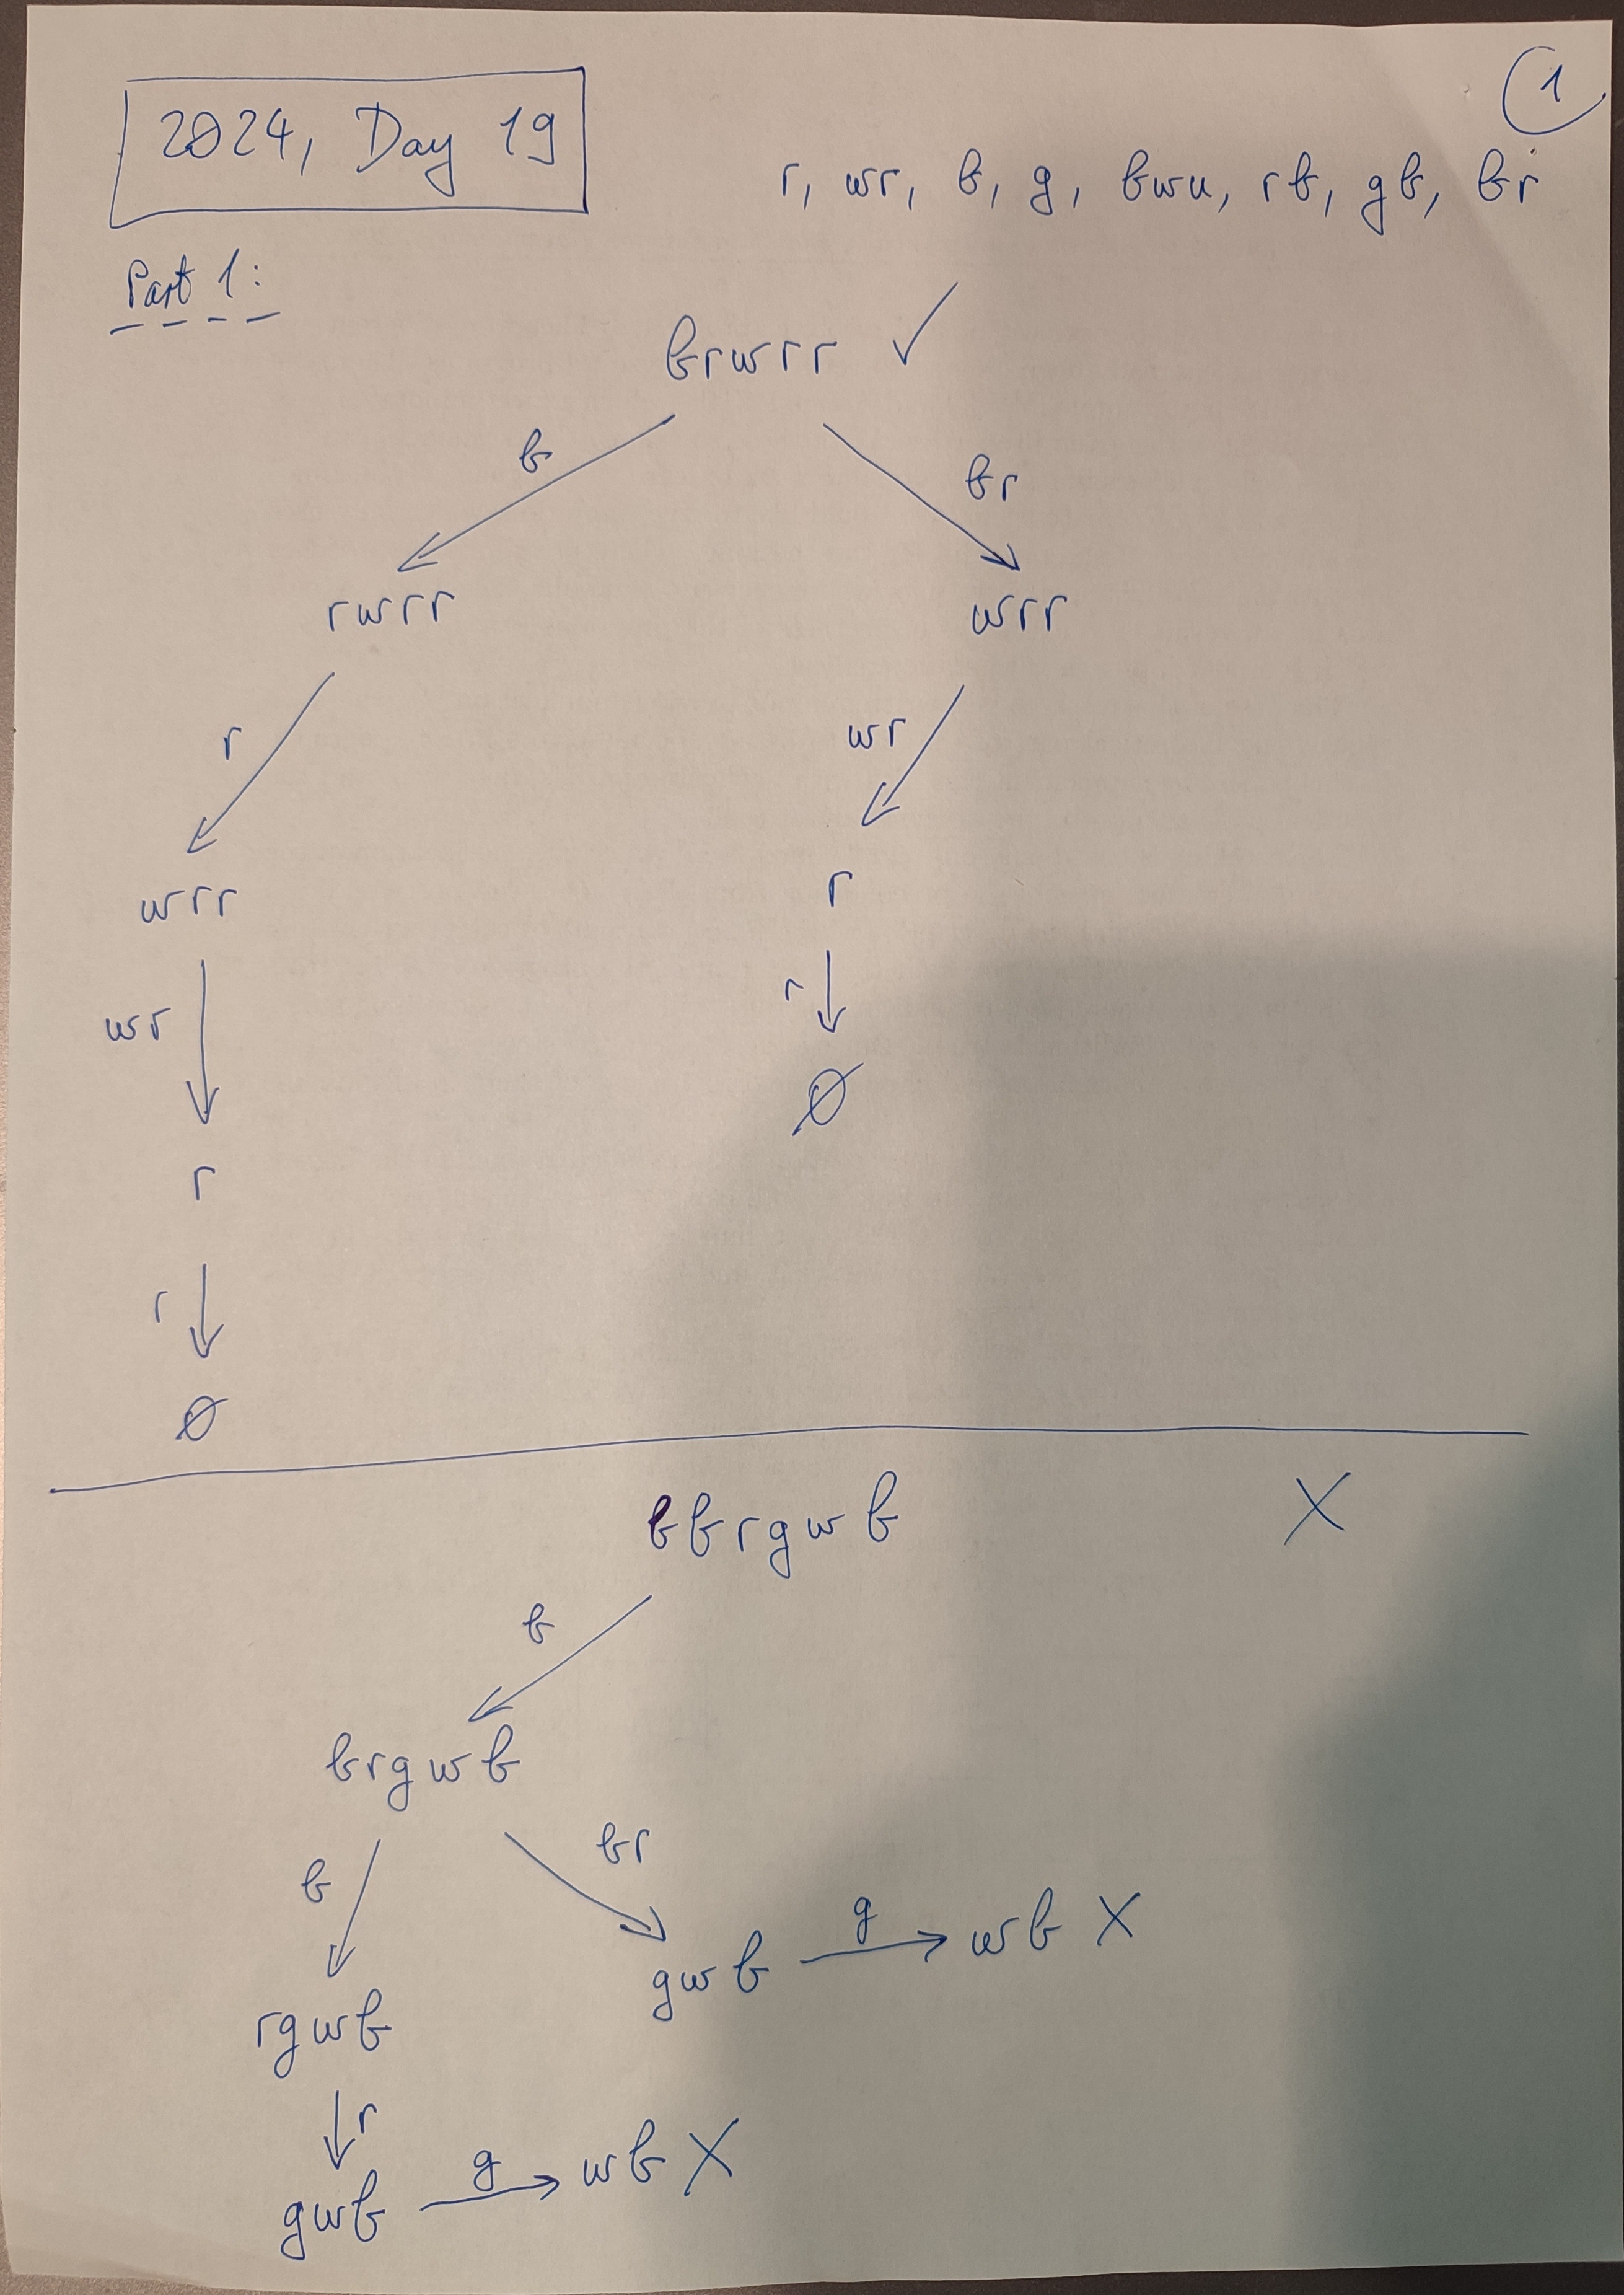 1
2024, Day 19
r, wr, b, g, bwu, rb, gb, br
Part 1:
brwrr ✓
b
br
rwrr
wrr
r
wr
wrr
r
wr
r
∅
r
r
∅
bbrgwb X
b
brgwb
b
br
gwb g wb X
rgwb
r
gwb g wb X